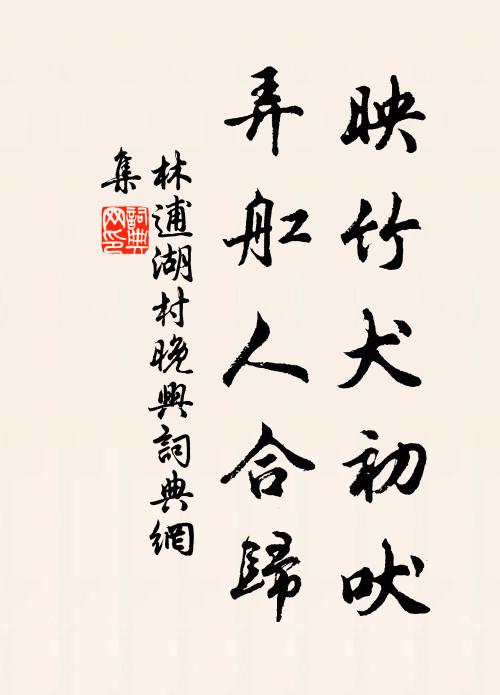 映竹犬初吠
弄舡人合歸
林逋湖村晚興詞典網
集
詞典網印